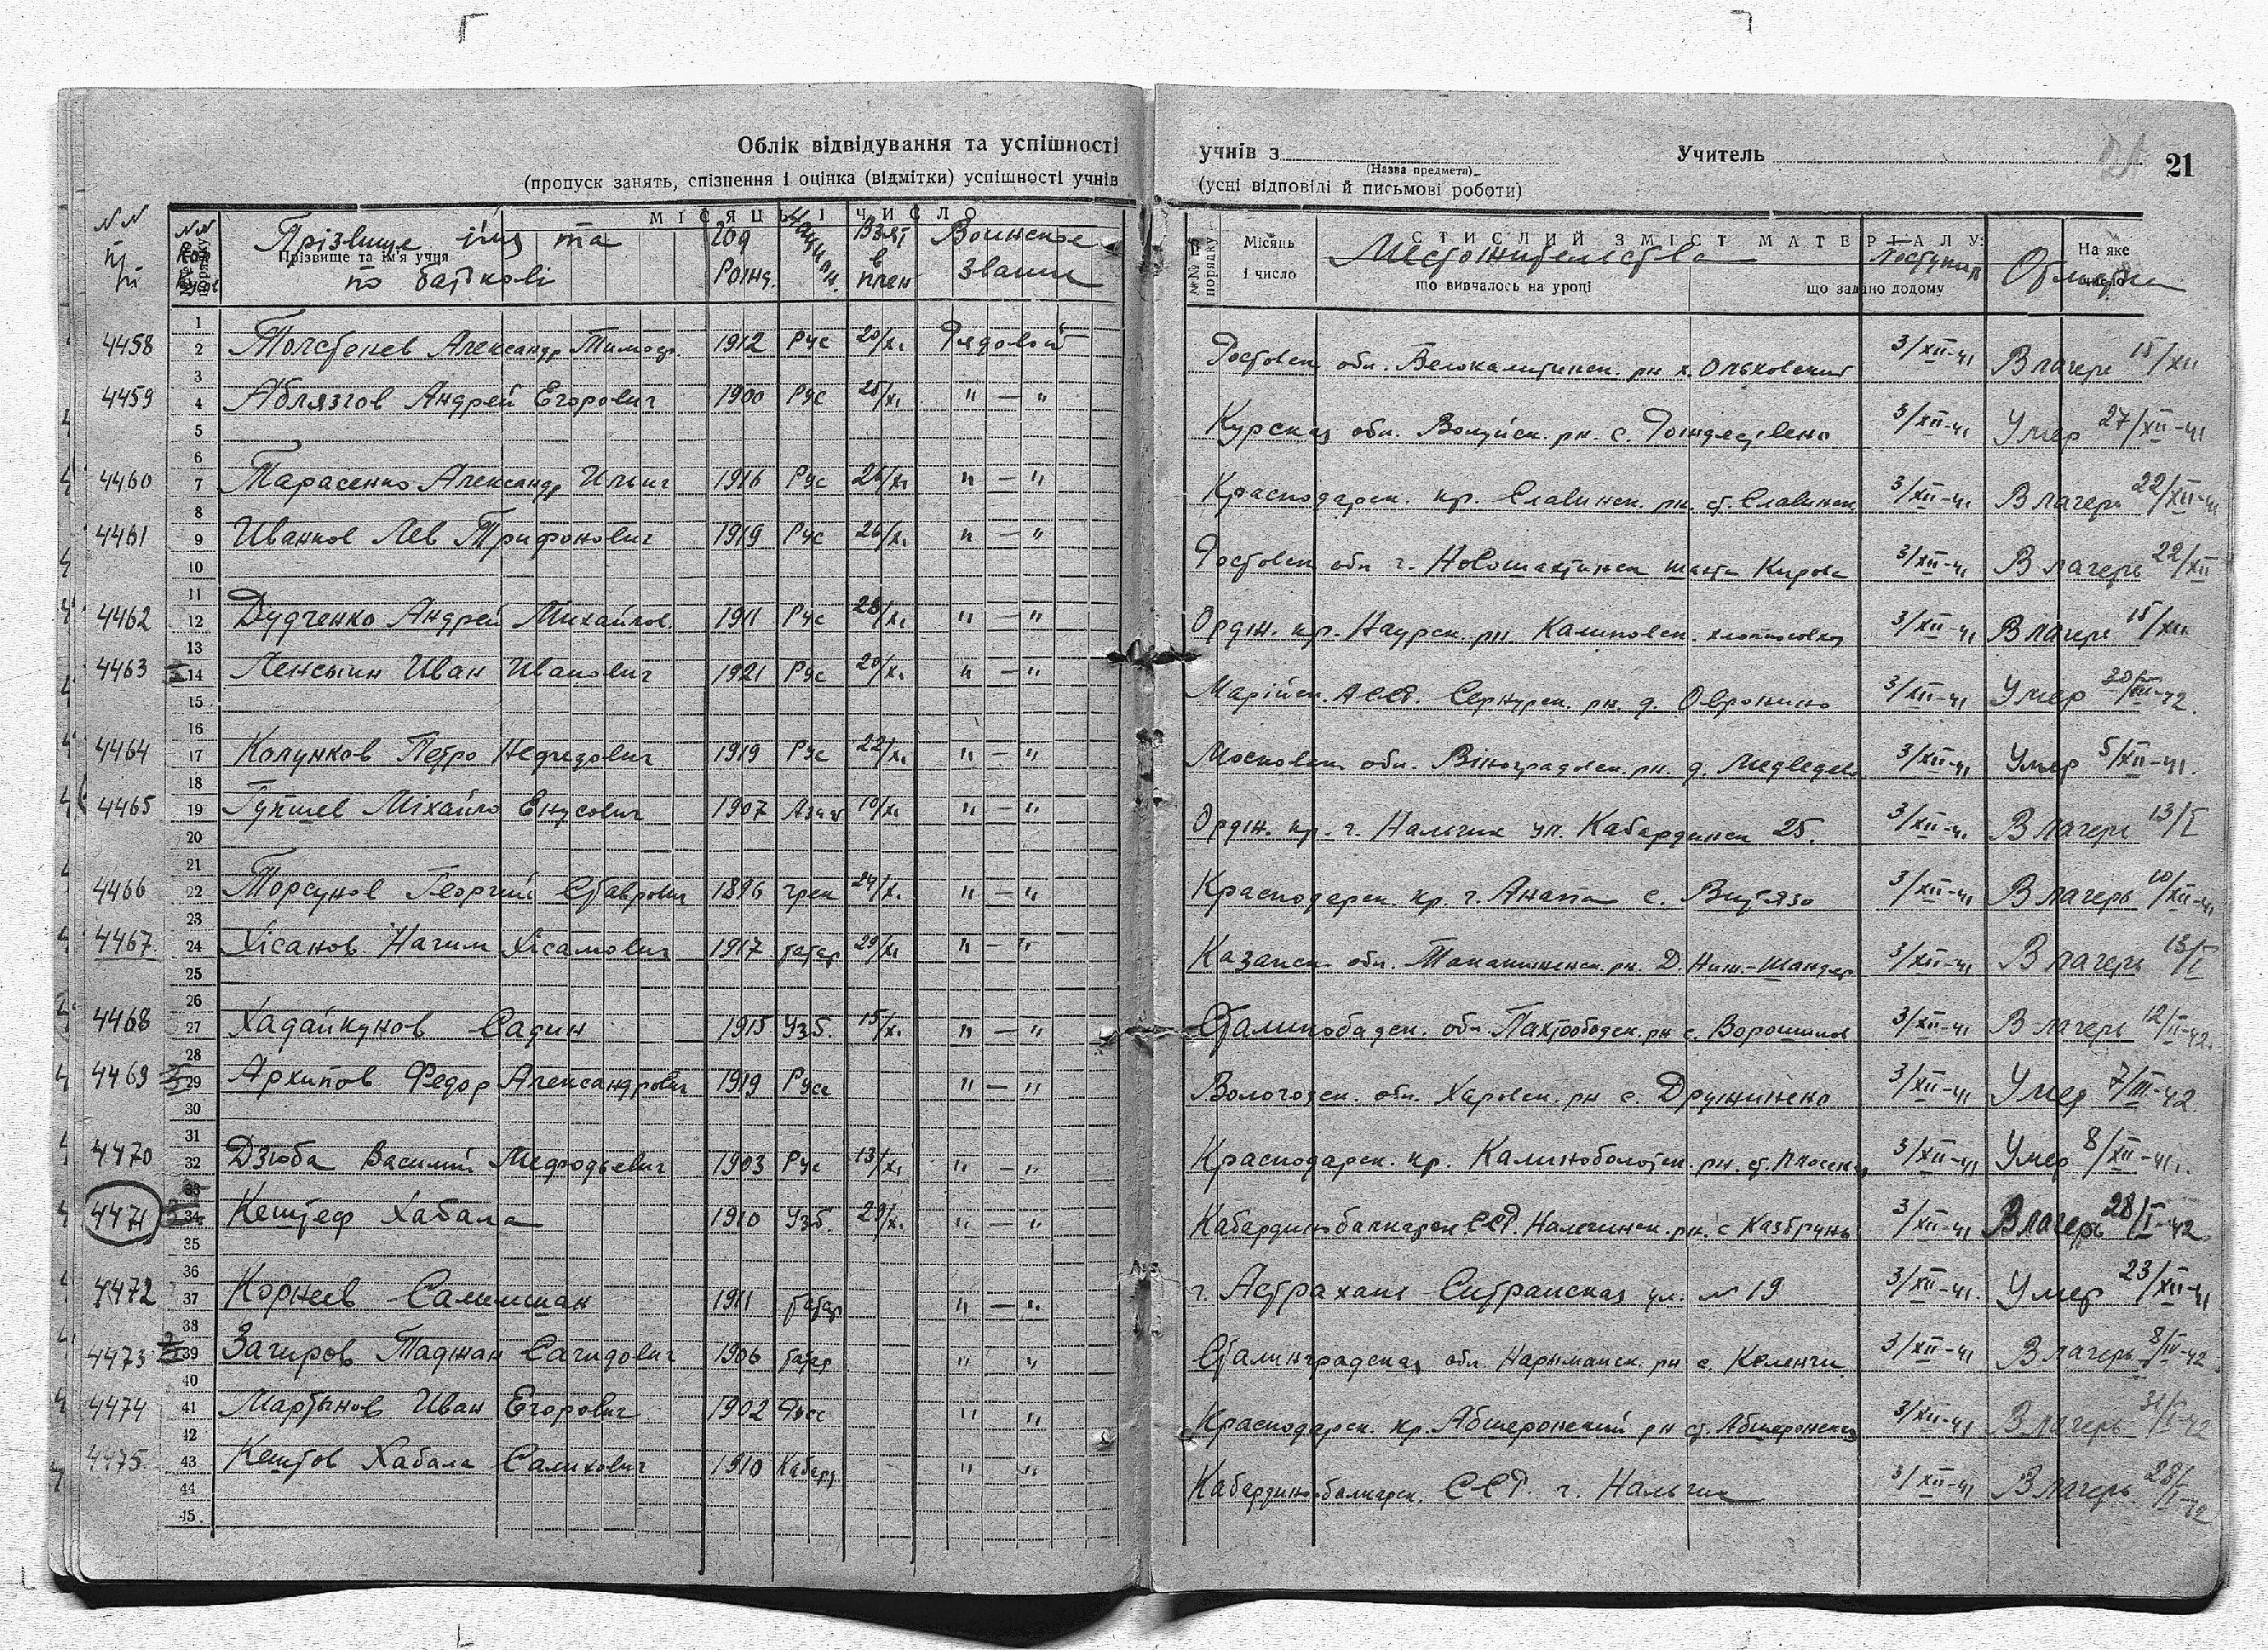 Облік відвідування та успішності
(пропуск занять, спізнення і оцінка (відмітки) успішності учнів
учнів з Учитель 21
(Назва предмета)
(усні відповіді й письмові роботи)
МІСЯЦЬ І ЧИСЛО
№№ п/п Прізвище імя та по батькові год рожд. Национ. Взят в плен Воинское звание
Прізвище та ім'я учня
№№ порядку Місяць і число СТИСЛИЙ ЗМІСТ МАТЕРІАЛУ: На яке число
Местожительство Поступил
що вивчалось на уроці що задано додому
4458 2 Толстенев Александр Тимоф. 1912 Рус 20/XI Рядовой Ростовск обл. Белокалитвинск. рн х. Ольховский 3/XII-41 В лагерь 15/XII
4459 4 Аблязгов Андрей Егорович 1900 Рус 25/XI " — " Курская обл. рн. с. 3/XII-41 Умер 27/XII-41
4460 7 Тарасенко Александр Ильич 1916 Рус 26/XI " — " Краснодарск. кр. Славинск. рн. ст. Славинск 3/XII-41 В лагерь 22/XII-41
4461 9 Иванков Лев Трифонович 1919 Рус 26/XI " — " Ростовск обл г. Новошахтинск шахта Кирова 3/XII-41 В лагерь 22/XII
4462 12 Дудченко Андрей Михайлов. 1911 Рус 28/XI " — " Ордж. кр. Наурск. рн. Калиновск. 3/XII-41 В лагерь 15/XII
4463 14 Ленсын Иван Иванович 1921 Рус 20/XI " — " Марійск. АССР. Сернурск. рн. д. 3/XII-41 Умер
4464 17 Колунков Петро Нефедович 1919 Рус 22/XI " — " Московск обл. Віноградовск. рн. д. Медведево 3/XII-41 Умер 5/XII-41.
4465 19 Гупшев Міхайло Енусович 1907 10/XI " — " Ордж. кр. г. Нальчик ул. Кабардинск 25. 3/XII-41 В лагерь 13/I
4466 22 Торсунов Георгий Ставрович 1896 грек 24/XI " — " Краснодарск. кр. г. Анапа с. Витязо 3/XII-41 В лагерь 10/XII-41
4467 24 Хісанов Нагим Хісамович 1917 татар 29/XI " — " Казанск. обл. рн. Д. 3/XII-41 В лагерь 13/I
4468 27 Хадайкунов Садин 1915 Узб. 15/XI " — " Сталинобадск. обл. Пахтообадск. рн с. Ворошилов 3/XII-41 В лагерь 12/II-42.
4469 29 Архипов Федор Александрович 1919 Русс " — " Вологодск. обл. Харовск. рн с. Дружинено 3/XII-41 Умер 7/III-42
4470 32 Дзюба Василий Мефодьевич 1903 Рус 13/XI " — " Краснодарск. кр. Калиноболотск. рн. ст. 3/XII-41 Умер 8/XII-41.
4471 34 Кештеф Хабала 1910 Узб. 29/XI " — " Кабардинобалкарск ССР. Нальчинск. рн. с Казбрунь 3/XII-41 В лагерь 28/I-42
4472 37 Корнеев Салимшан 1911 татар " — " г. Астрахань ул. №19 3/XII-41. Умер 23/XII-41
4473 39 Загиров Таджан Сагидович 1906 татар " " Сталинградская обл. Нариманск. рн с. Келенчи 3/XII-41 В лагерь 8/IV-42
4474 41 Мартынов Иван Егорович 1902 Русс " " Краснодарск. кр. Абшеронский рн ст. Абшеронская 3/XII-41 В лагерь
4475 43 Кештов Хабала Салихович 1910 Кабард " " Кабардинобалкарск. ССР. г. Нальчик 3/XII-41 В лагерь 28/II-42